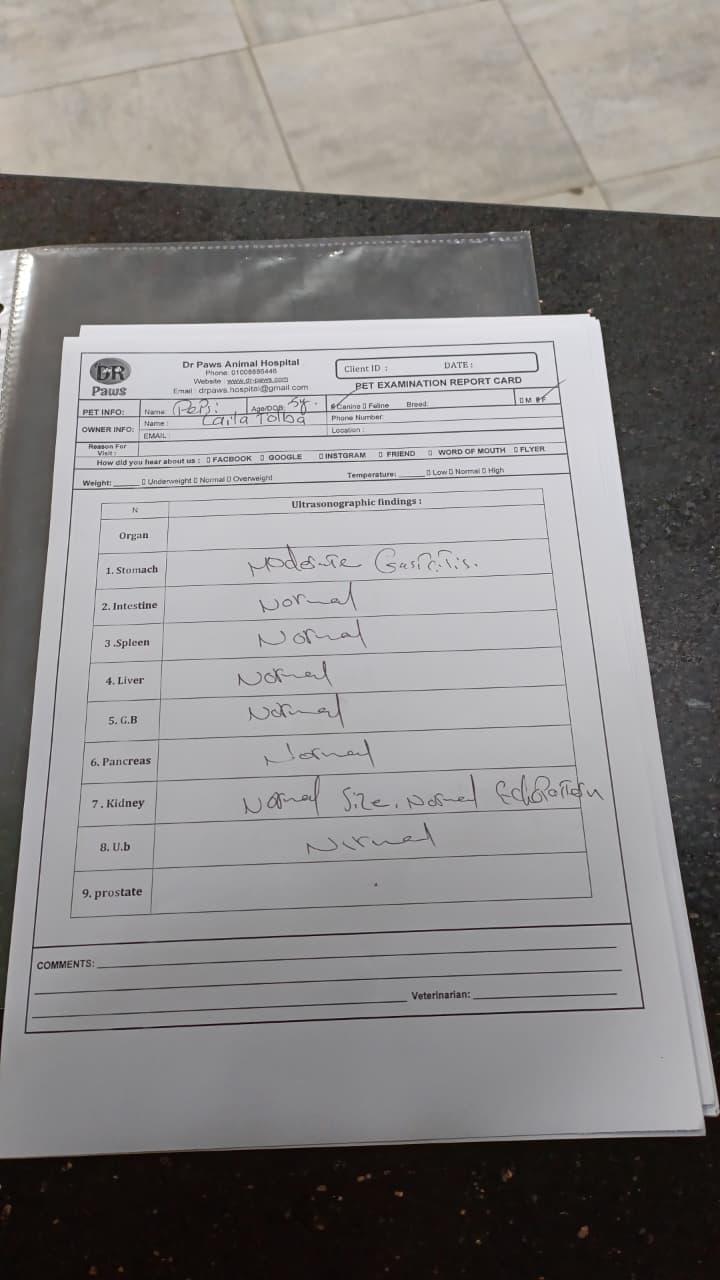 DR
Paws
Dr Paws Animal Hospital
Phone: 01008895446
Website : www.dr-paws.com
Email : drpaws.hospital@gmail.com
Client ID : DATE :
PET EXAMINATION REPORT CARD
PET INFO: Name: Pepsi Age/DOB: 5y. Canine Feline Breed: M F
OWNER INFO: Name : Laila Tolba Phone Number:
EMAIL: Location :
Reason For Visit :
How did you hear about us : FACBOOK GOOGLE INSTGRAM FRIEND WORD OF MOUTH FLYER
Weight: Underweight Normal Overweight Temperature: Low Normal High
N Ultrasonographic findings :
Organ
1. Stomach Moderate Gastritis.
2. Intestine Normal
3 .Spleen Normal
4. Liver Normal
5. G.B Normal
6. Pancreas Normal
7. Kidney Normal Size. Normal
8. U.b Normal
9. prostate
COMMENTS:
Veterinarian: